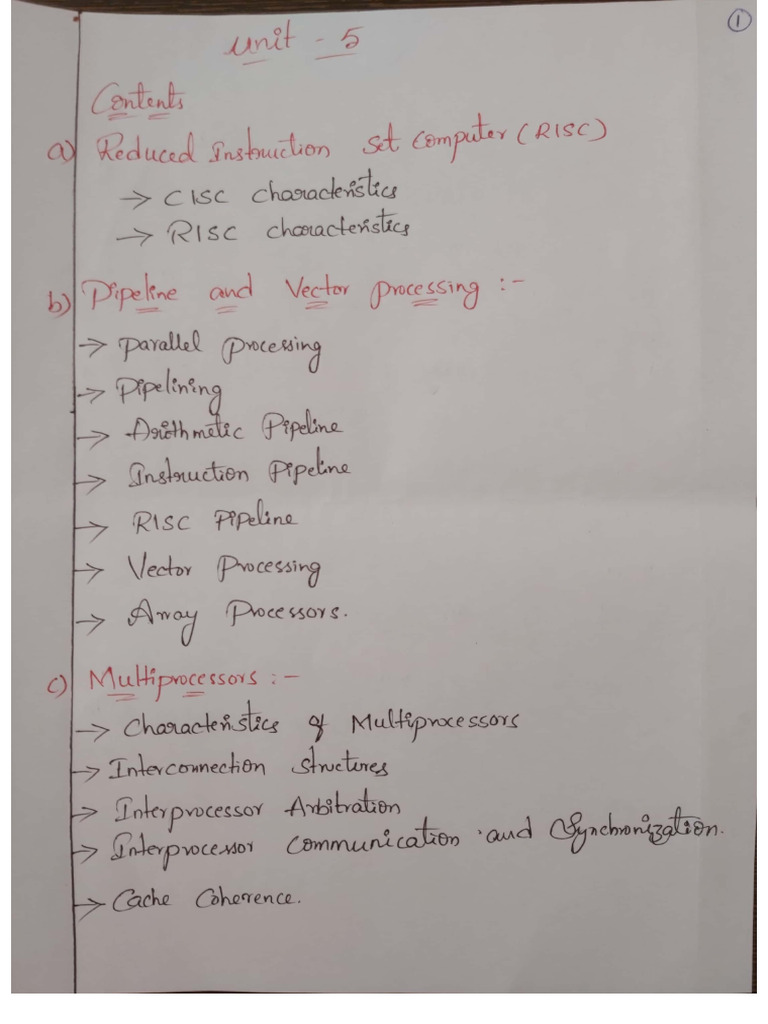 1
Unit - 5
Contents
a) Reduced Instruction Set Computer (RISC)
→ CISC characteristics
→ RISC characteristics
b) Pipeline and Vector processing :-
→ Parallel Processing
→ Pipelining
→ Arithmetic Pipeline
→ Instruction Pipeline
→ RISC Pipeline
→ Vector Processing
→ Array Processors.
c) Multiprocessors :-
→ Characteristics of Multiprocessors
→ Interconnection Structures
→ Interprocessor Arbitration
→ Interprocessor Communication and Synchronization.
→ Cache Coherence.